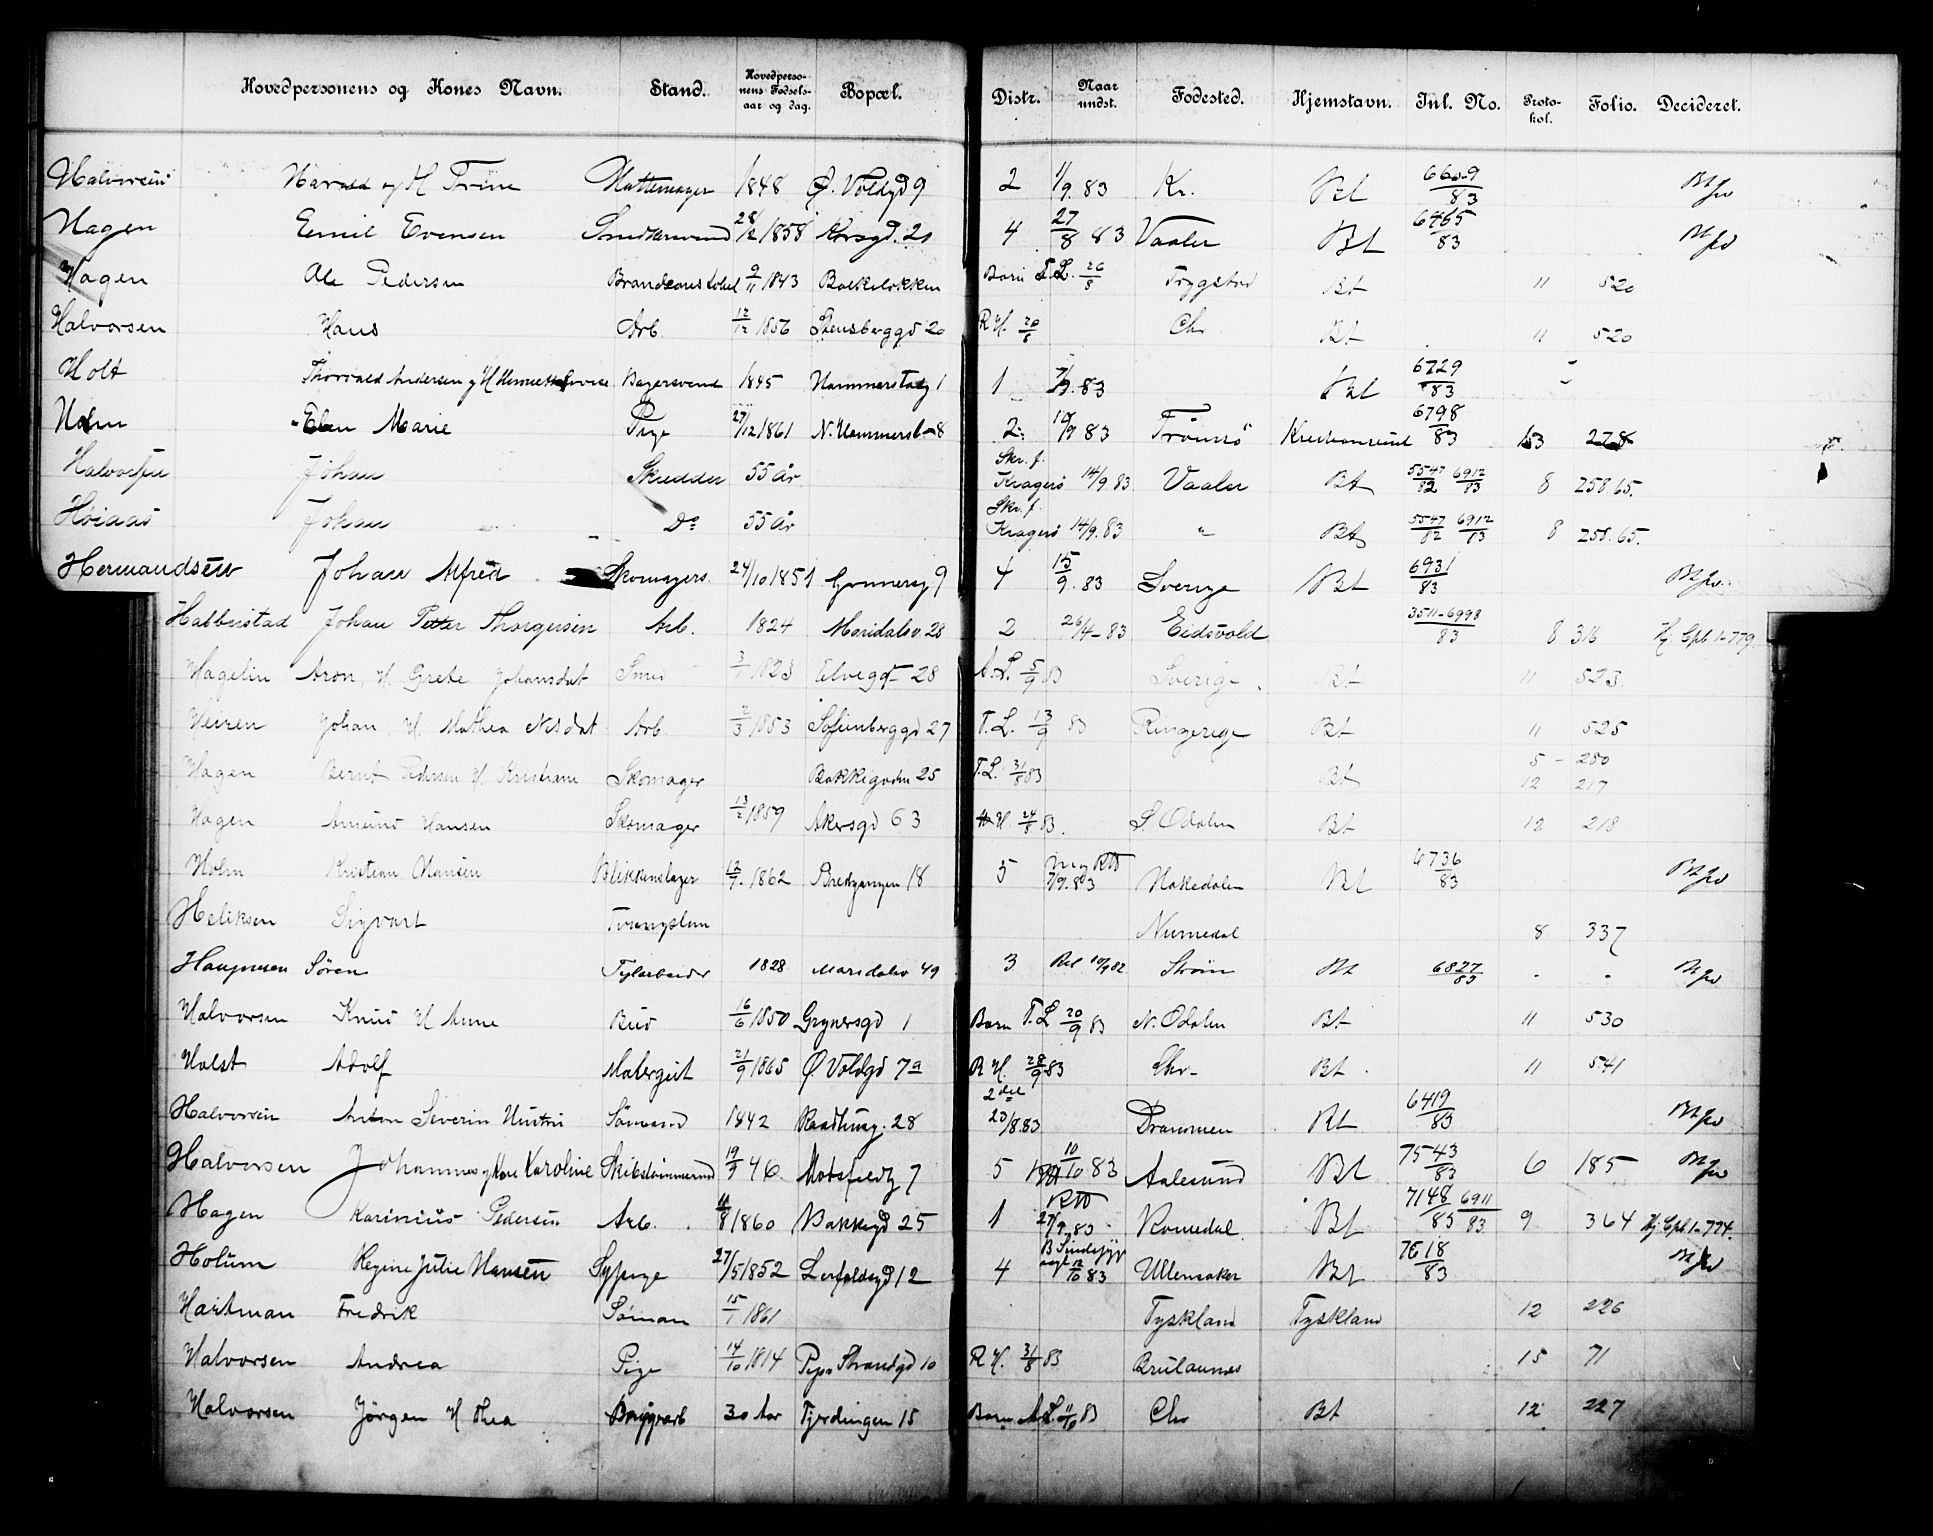 Hovedpersonens og Kones Navn. Stand. Hovedpersonens Fødselsaar og dag. Bopæl. Distr. Naar undst. Fødested. Hjemstavn. Jnl. No. Protokol. Folio. Decideret.
Halvorsen Harald og H Trine Hattemager 1848 Ø. Voldgd 9 2 1/9. 83 Kr. Bt 6609/83
Hagen Emil Evensen 28/2 1858 Korsgd. 21 4 27/8 83 Vaaler Bt 6465/83
Hagen Ole Pedersen 9/11 1843 Bakkeløkken Barn T.L. 26/8 Trygstad Bt 11 520
Halvorsen Hans Arb. 12/12 1856 Stensberggd 20 R.H. 20/8 Chr Bt 11 520
Holt Thorvald Andersen og H Bagersvend 1845 1 83 Bt 6729/83
Holm Elen Marie Pige 27/12 1861 N. 8 2 83 Tromsø Kristiansund 6798/83 153 278
Halvorsen Johan Skredder 55 År Skr. f. Kragerø 14/9. 83 Vaaler Bt 5547/82 6912/83 8 258.65.
Høiaas Johan Do 55 År Skr. f. Kragerø 14/9. 83 " Bt 5547/82 6912/83 8 258.65.
Hermandsen Johan Alfred Skomagers. 24/10 1851 9 4 15/9. 83 Sverige Bt 6931/83
Halberstad Johan Petter Thorgersen Arb. 1824 Maridalsv. 28 2 26/4 - 83 Eidsvold 3511-6998/83 8 316 Hj. Cpb. 1-779.
Hagelin Aron, H. Grete Johansdat Smed 3/1 1823 Elvegd 28 A.L. 5/9 83 Sverige Bt 11 523
Heiren Johan, H. Mathea Nilsdat Arb. 2/3 1853 Sofienberggd 27 T.L. 13/9 83 Ringerige Bt 11 525
Hagen Bernt Pedersen H. Kristiane Skomager Bakkegaden 25 T.L. 31/8 83 Bt 5 - 280 12 217
Hagen Amund Hansen Skomager 13/2 1859 Akersgd 63 H 24/8 83. S. Odalen Bt 12 218
Holm Kristian Hansen Blikkenslager 12/9. 1862 Bredgangen 18 5 83 Hakedalen Bt 6736/83
Heliksen Sigvart Tvangslem Numedal 8 337
Søren 1828 Maridalsv 49 3 10/9 82 Strøm Bt 6827/83
Halvorsen Knud H Anne Bud 16/6 1850 Grynersgd 1 Barn T.L 20/9 83 N. Odalen Bt 11 530
Holst Adolf Malergut 21/9 1865 Ø. Voldgd 7a R.H. 28/9 83 Chr. Bt 11 541
Halvorsen Anton Severin 1842 28 2 del 23/8. 83 Drammen Bt 6419/83
Halvorsen Johannes og Kone Karoline Skibstømmermd 19/9 46. Motzfeldtg 7 5 10/10 83 Aalesund Bt 7543/83 6 185
Hagen Karinius Pedersen Arb. 1860 Bakkegd 25 1 27/9. 83 Romedal Bt 7148/83 6911/83 9 364 Hj. Cpb. 1-774.
Holum Regine Julie Hansen Sypige 27/5 1852 Lerfaldsgd 12 4 12/10 83 Ullensaker Bt 7618/83
Hartman Fredrik Søman 15/1 1861 Tyskland Tyskland 12 226
Halvorsen Andrea Pige 14/10 1814 Piper Strandgd 10 R.H. 31/8 83 15 71
Halvorsen Jørgen H Thea Bryggarb 30 Aar Fjerdingen 15 Barn A.L. 11/10 83 Chr Bt 12 227